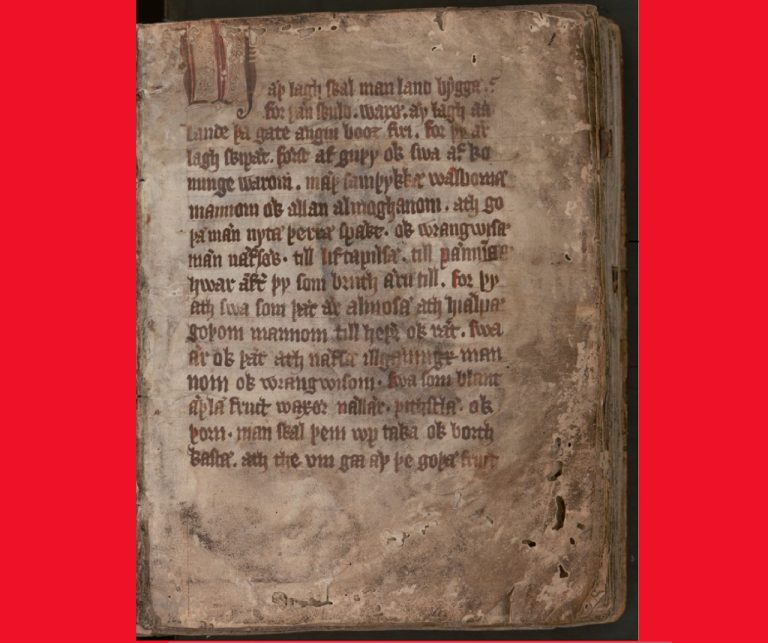 Maþ lagh skal man land byggæ.
for þan skuld. waræ. aþ lagh aa
lande þa gate angin boot firi. for þy ær
lagh skipat. forst af guþy ok swa af ko
nunge warom. mæþ samþykkæ wælborna
mannom ok allan almoghanom. ath go
þa mæn nyta þerræ spækt. ok wrangwisa
mæn næfsas. till liftapilsa. till pænninga
hwar æftir þy som bruth æru till. for þy
ath swa som þæt ær almosa ath hialpa
goþom mannom till heþer ok ræt. swa
ær ok þæt ath næfsa illgærninge man
nom ok wrangwisom. swa som blant
æþla fruct waxer nællar. þithstla. ok
þorn. man skal þem wp taka ok borth
kasta. ath the vm gaa æy þe goþa fruct